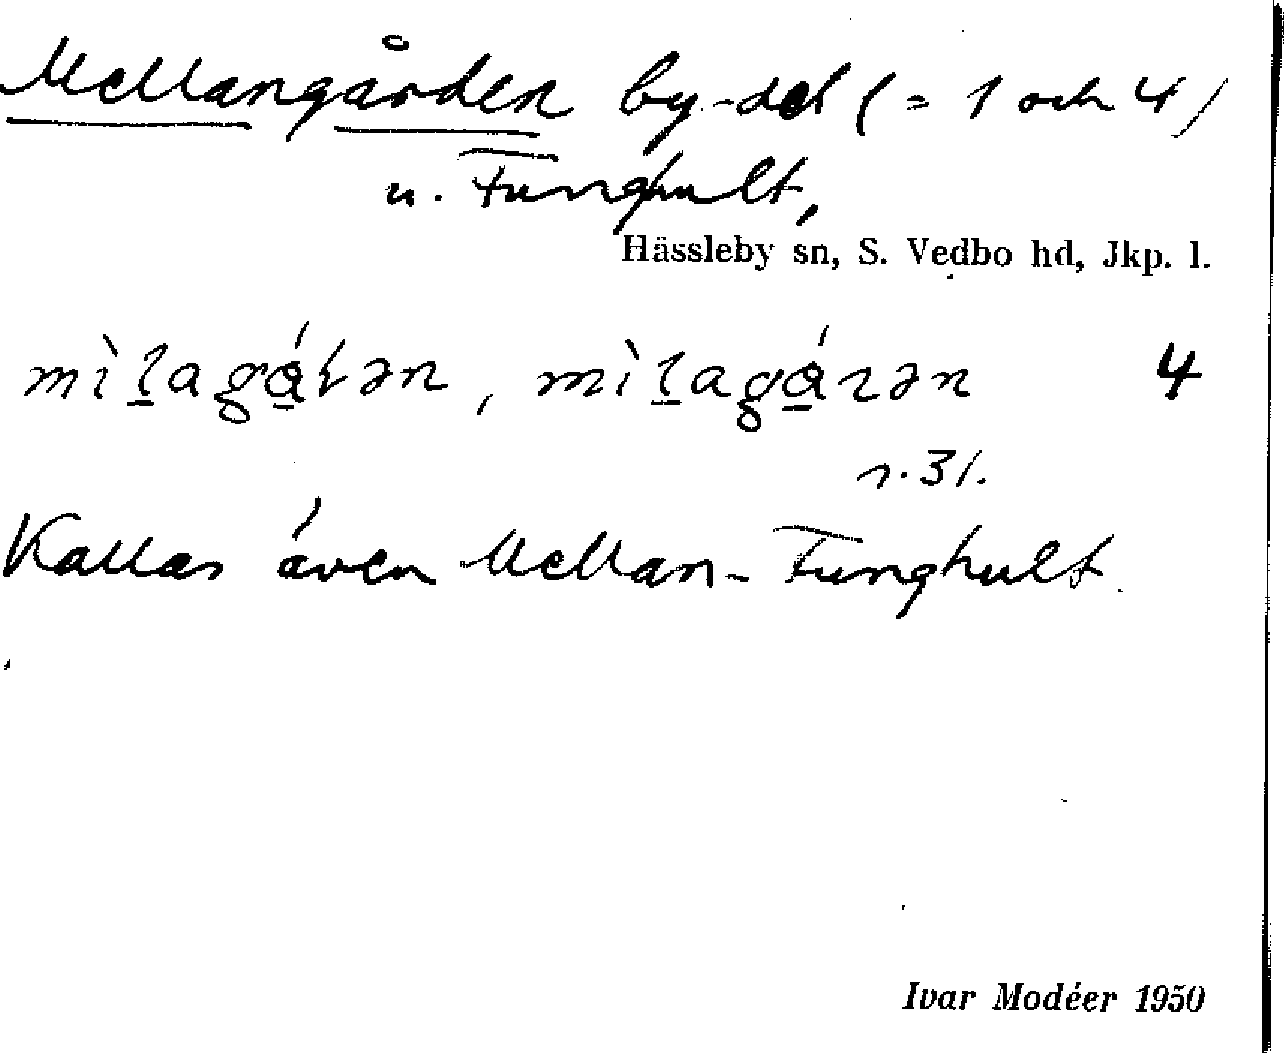 Mellangården by-del (= 1 och 4)
u. Funghult,
Hässleby sn, S. Vedbo hd, Jkp. l.
mìl̠agá̠rən, mìl̠agá̠rən 4
s. 31.
Kallas även Mellan-Funghult.
Ivar Modéer 1950